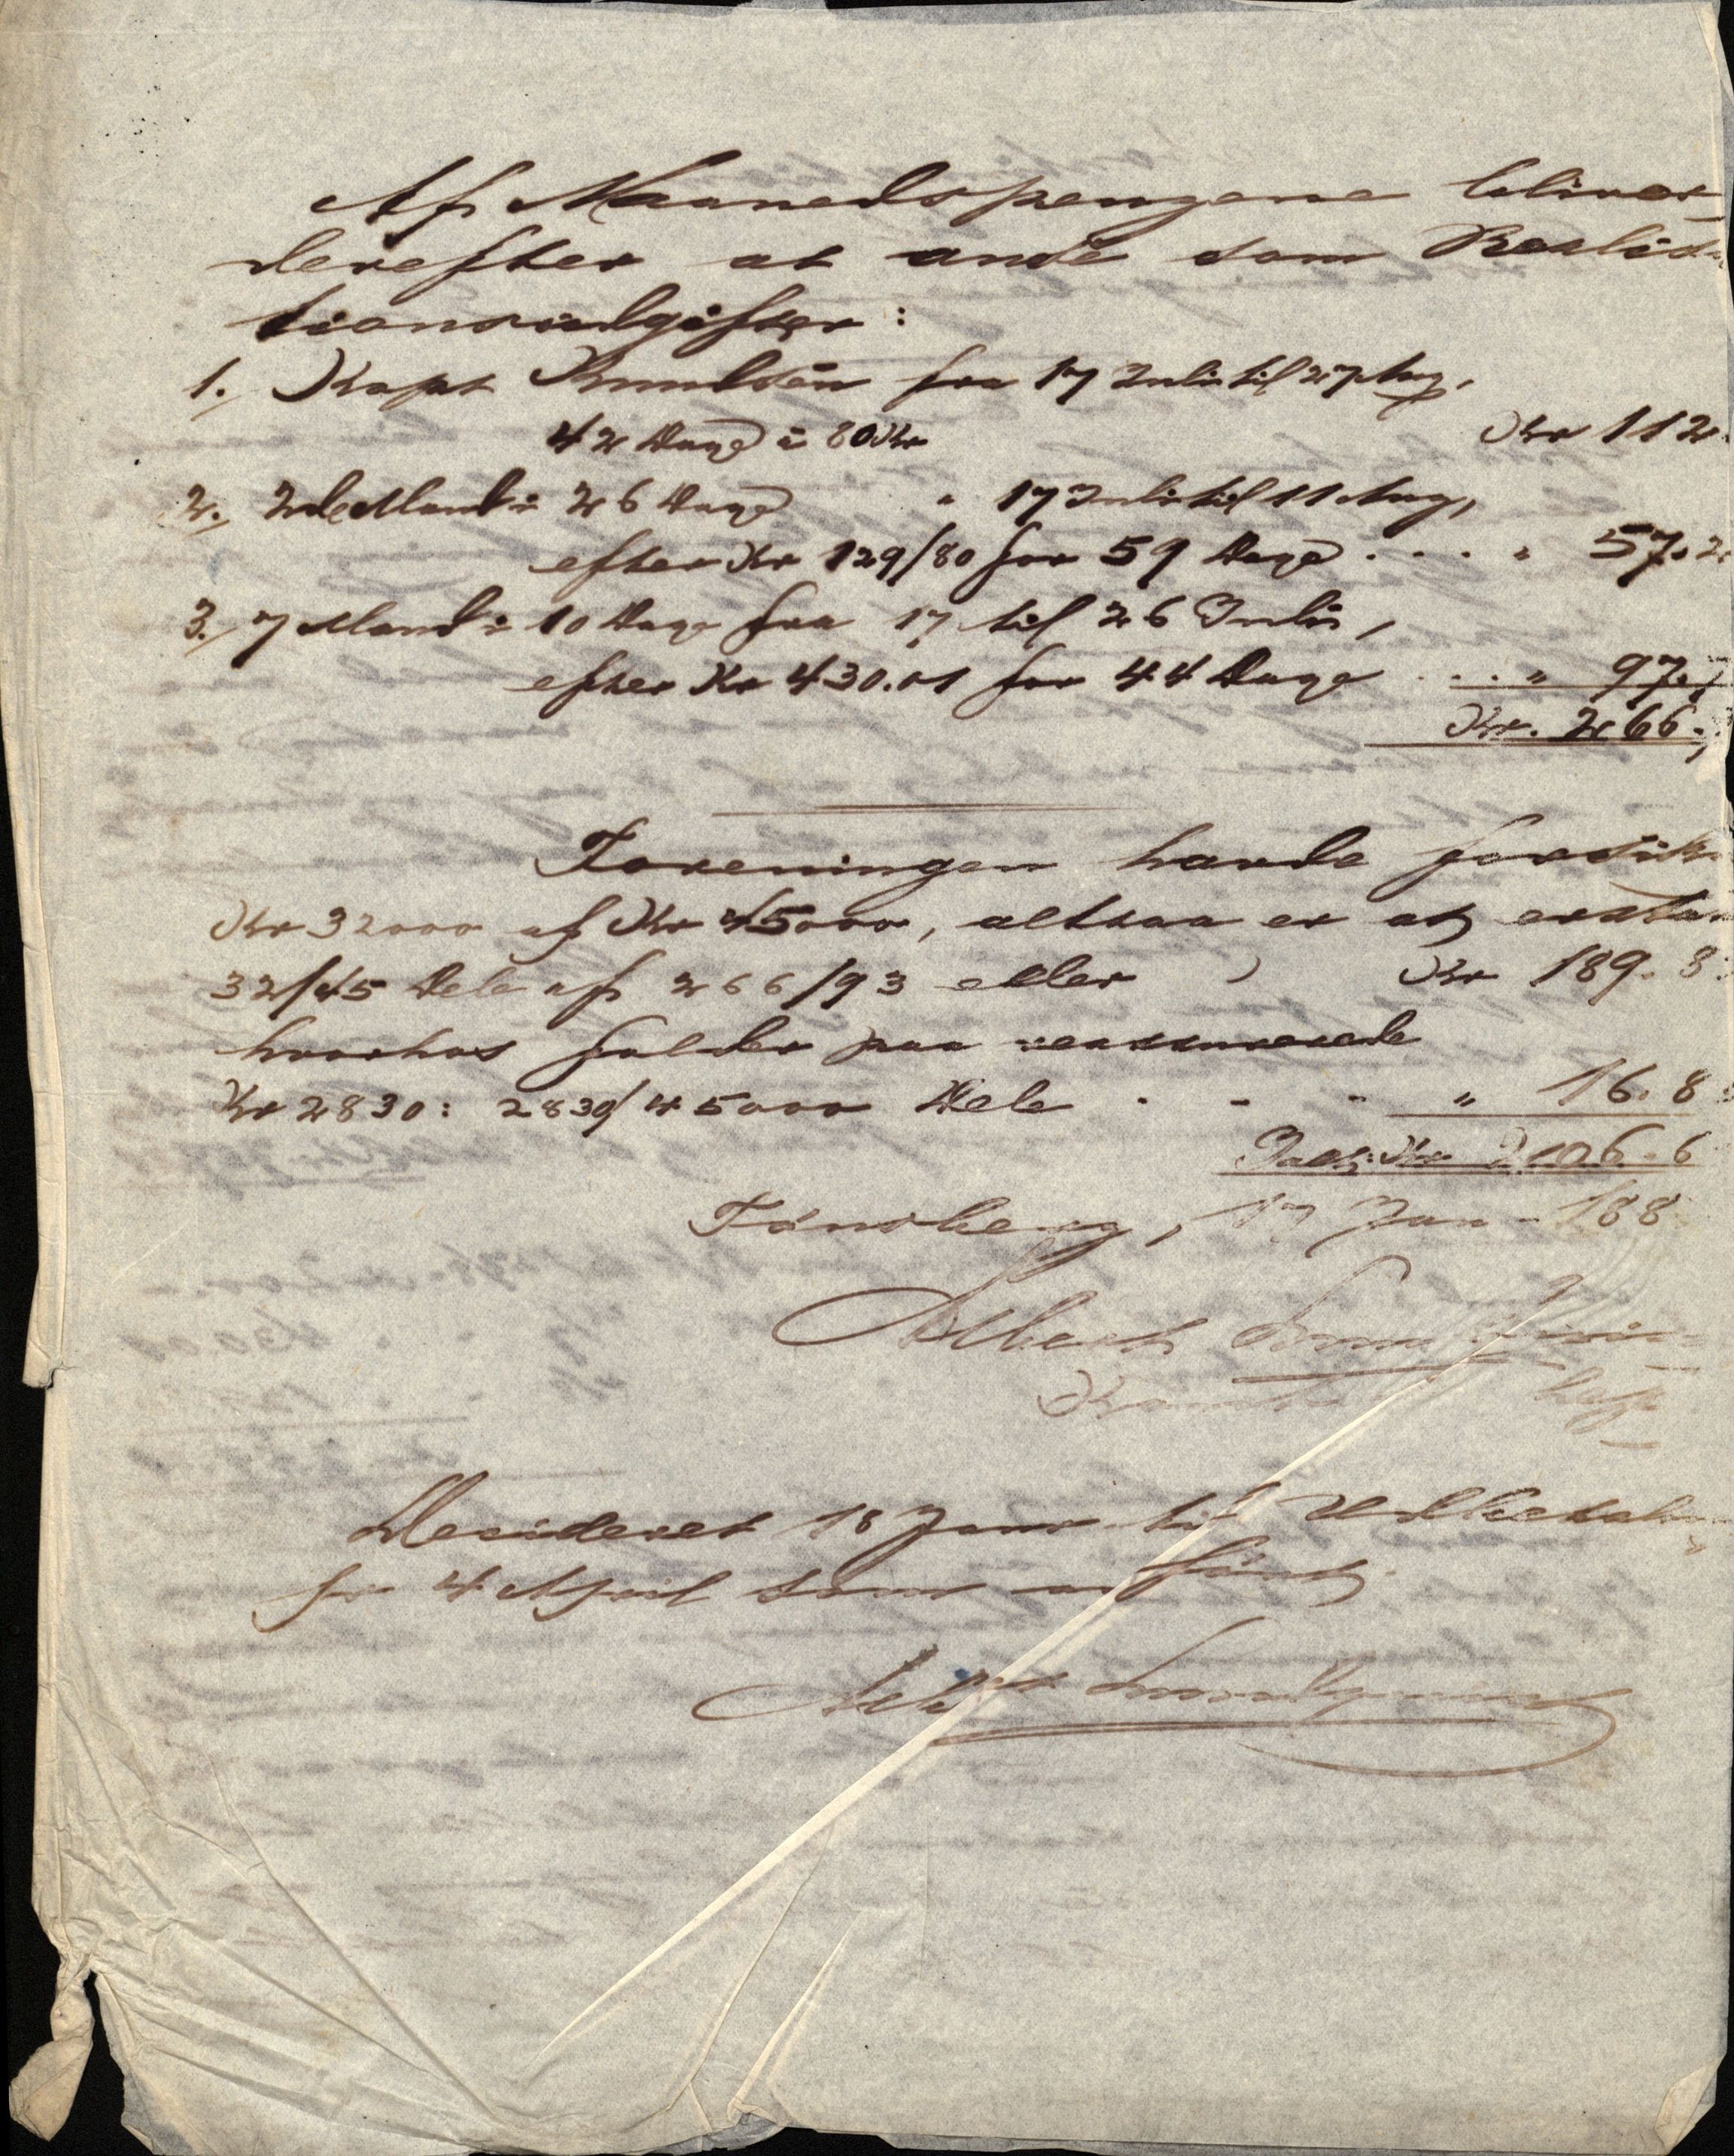 Af Maanedspengene bliver
derefter at anse som Realisa
tionsudgifter:
1. Kapt Knudsen fra 17 Juli til 27 Aug,
42 Dage à 80 Kr Kr 112.
2. 2de Mand i 26 Dage " 17 Juli til 11 Aug,
efter Kr 129/80 for 59 Dage . . . . " 57.2
3. 7 Mand i 10 Dage fra 17 til 26 Juli,
efter Kr 430.01 for 44 Dage . . . " 97.7
Kr. 266.
Foreningen havde forsikr
Kr 32000 af Kr 45000, altsaa er at erstat
32/45 Dele af 266/93 eller Kr 189.8
hvorhos falder paa reassurerede
Kr 2830: 2830/45000 Dele - - - " 16.8
Kr 206.6
Tønsberg, 17 Jan - 188
Albert
Decideret 18 Janr til Udbetaling
pr 4 April som anført